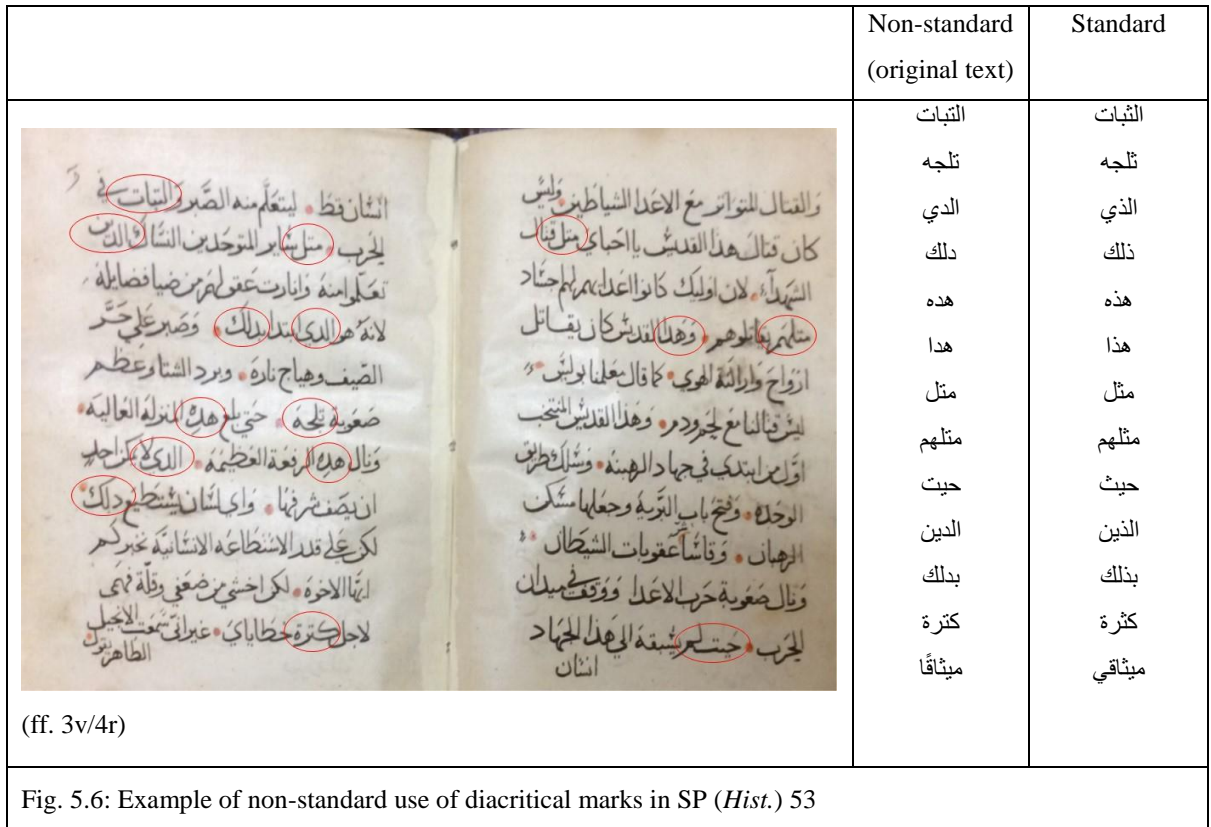 Non-standard (original text)
Standard
والقتال المتواتر مع الاعدا الشياطين وليس
كان قتال هذا القديس يا احباي متل قتال
الشهدآء • لان اوليك كانوا اعداهم لهم حساد
متلهم يقاتلوهم • وهدا القديس كان يقاتل
ارواح واراكنة الهوي • كما قال معلمنا بوليس
ليس قتالنا مع لحم ودم • وهذا القديس المنتخب
اول من ابتدي في جهاد الرهبنه • وسلك طريق
الوحده • وفتح باب التربة وجعلها مسكن
الرهبان • وقاسا عقوبات الشيطان
ونال صعوبة حرب الاعدا ووقف في ميدان
الحرب • حيت لم يسبقه الي هذا الجهاد
انسان
انسان قط • ليتعلم منه الصبر والتبات في
الحرب • متل ساير المتوحدين النساك الدين
تعلموا منه وانارت عقولهم من ضيا فضايله
لانه هو الدي ابتدا بدلك • وصبر علي حر
الصيف وهياج ناره • وبرد الشتا وعظم
صعوبة تلجه • حتي بلغ هده المنزله العاليه •
ونال هده الرفعه العظيمه • الدي لا يمكن احد
ان يصف شرفها • واي لسان يستطيع دلك •
لكن علي قدر الاستطاعه الانسانيه نخبركم
ايها الاخوه • لكن اخشي من ضعفي وقلة فهمي
لاجل كترة خطاياي • غير اني سمعت الانجيل
الطاهر يقول
(ff. 3v/4r)
التبات الثبات
تلجه ثلجه
الدي الذي
دلك ذلك
هده هذه
هدا هذا
متل مثل
متلهم مثلهم
حيت حيث
الدين الذين
بدلك بذلك
كترة كثرة
ميثاقًا ميثاقي
Fig. 5.6: Example of non-standard use of diacritical marks in SP (Hist.) 53